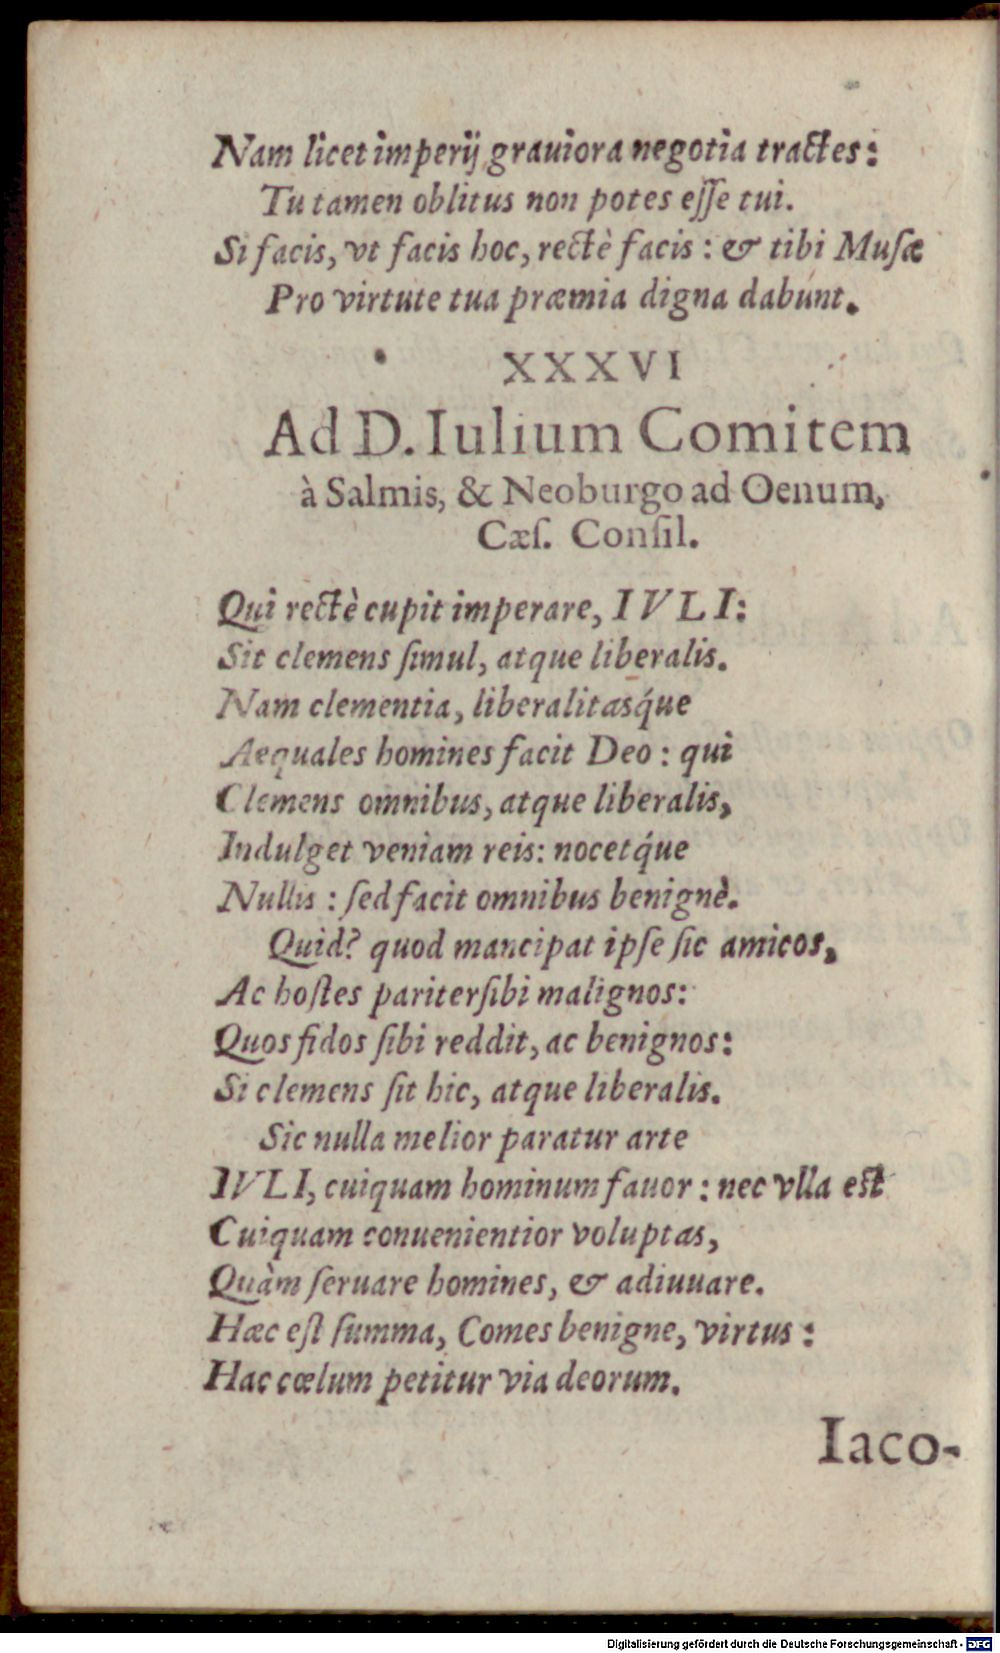 Nam licet imperij grauiora negotia tractes:
Tu tamen oblitus non potes eſſe tui.
Si facis, vt facis hoc, rectè facis: & tibi Muſæ
Pro virtute tua præmia digna dabunt.
XXXVI
Ad D. Iulium Comitem
à Salmis, & Neoburgo ad Oenum,
Cæſ. Conſil.
Qui rectè cupit imperare, IVLI:
Sit clemens ſimul, atque liberalis.
Nam clementia, liberalitasq́ue
Aequales homines facit Deo: qui
Clemens omnibus, atque liberalis,
Indulget veniam reis: nocetq́ue
Nullis: ſed facit omnibus benignè.
Quid? quod mancipat ipſe ſic amicos,
Ac hoſtes pariter ſibi malignos:
Quos fidos ſibi reddit, ac benignos:
Si clemens ſit hic, atque liberalis.
Sic nulla melior paratur arte
IVLI, cuiquam hominum fauor: nec vlla est
Cuiquam conuenientior voluptas,
Quàm ſeruare homines, & adiuuare.
Hæc eſt ſumma, Comes benigne, virtus:
Hac cœlum petitur via deorum.
Iaco-
Digitalisierung gefördert durch die Deutsche Forschungsgemeinschaft - DFG